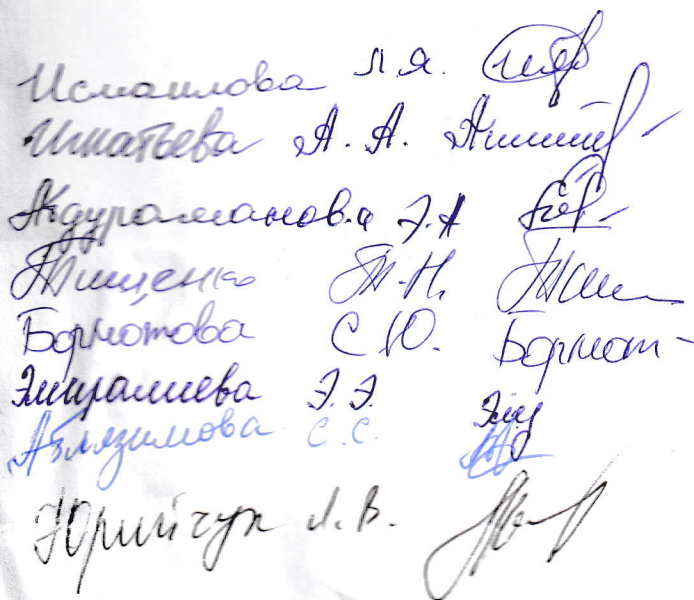 Исмаилова Л.Я.
Игнатьева А.А.
Абдураманова Э.А
Тищенко Т.Н.
Бормотова С.Ю. Бормот
Эмиралиева Э.Э. Эму
Аблязимова С.С.
Юрийчук Л.В.